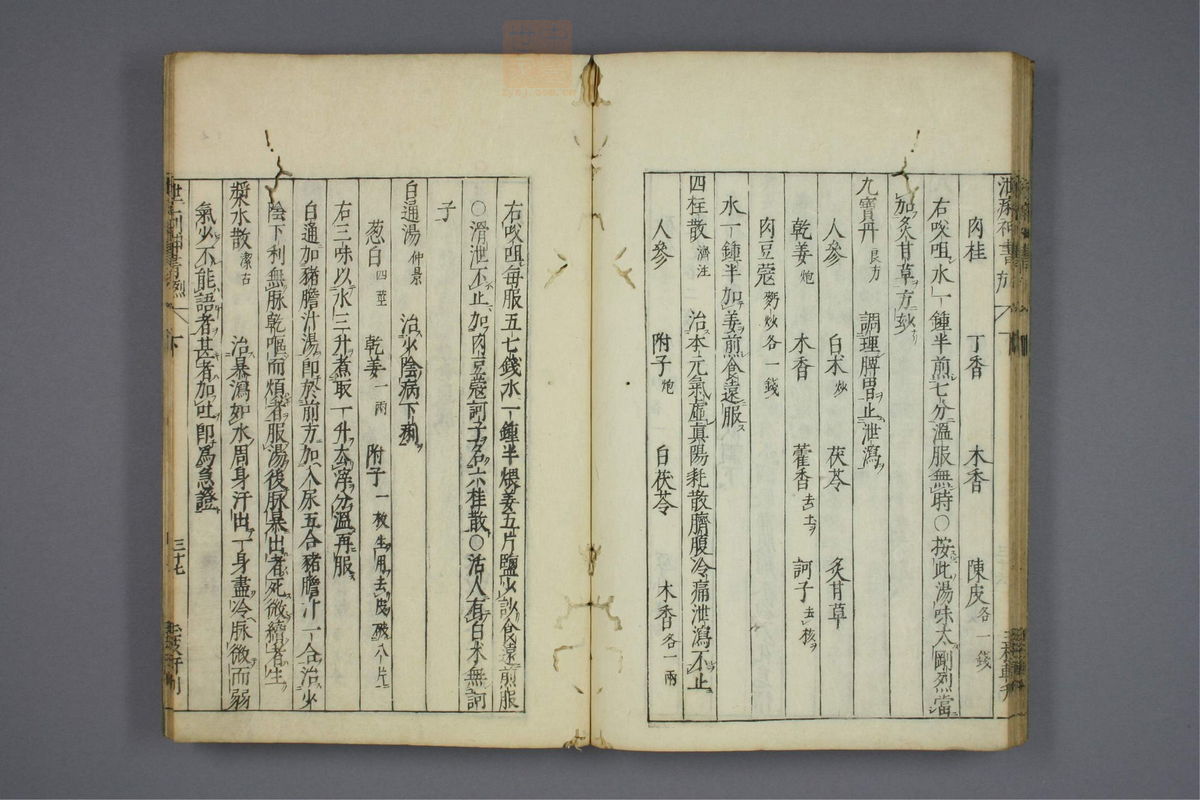 肉桂 丁香 木香 陳皮各一錢
右㕮咀水一鍾半煎七分溫服無時○按此湯味太剛烈當
加炙甘草方玅
九寶丹良方 調理脾胃止泄瀉
人參 白朮炒 茯苓 炙甘草
乾姜炮 木香 藿香去土 訶子去核
肉豆蔻麪炒各一錢
水一鍾半加姜煎食遠服
四柱散濟生 治本元氣虛真陽耗散臍腹冷痛泄瀉不止
人參 附子炮 白茯苓 木香各一兩
右㕮咀每服五七錢水一鍾半煨姜五片鹽少許食遠煎服
○滑泄不止加肉豆蔻訶子名六柱散○活人有白朮無訶
子
白通湯仲景 治少陰病下利
葱白四莖 乾姜一兩 附子一枚生用去皮破八片
右三味以水三升煮取一升去滓分溫再服
白通加豬膽汁湯即於前方加入尿五合豬膽汁一合治少
陰下利無脉乾嘔而煩者服湯後脉暴出者死微續者生
漿水散潔古 治暴瀉如水周身汗出一身盡冷脉微而弱
氣少不能語者甚者加吐即為急證
三十七